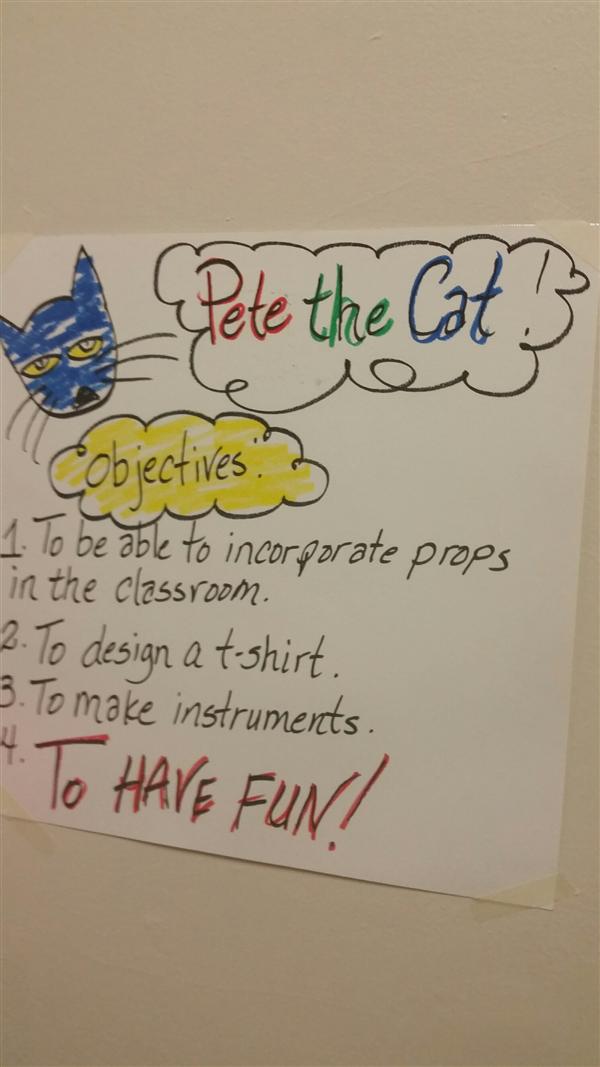 Pete the Cat!
Objectives:
1. To be able to incorporate props
in the classroom.
2. To design a t-shirt.
3. To make instruments.
4. To HAVE FUN!